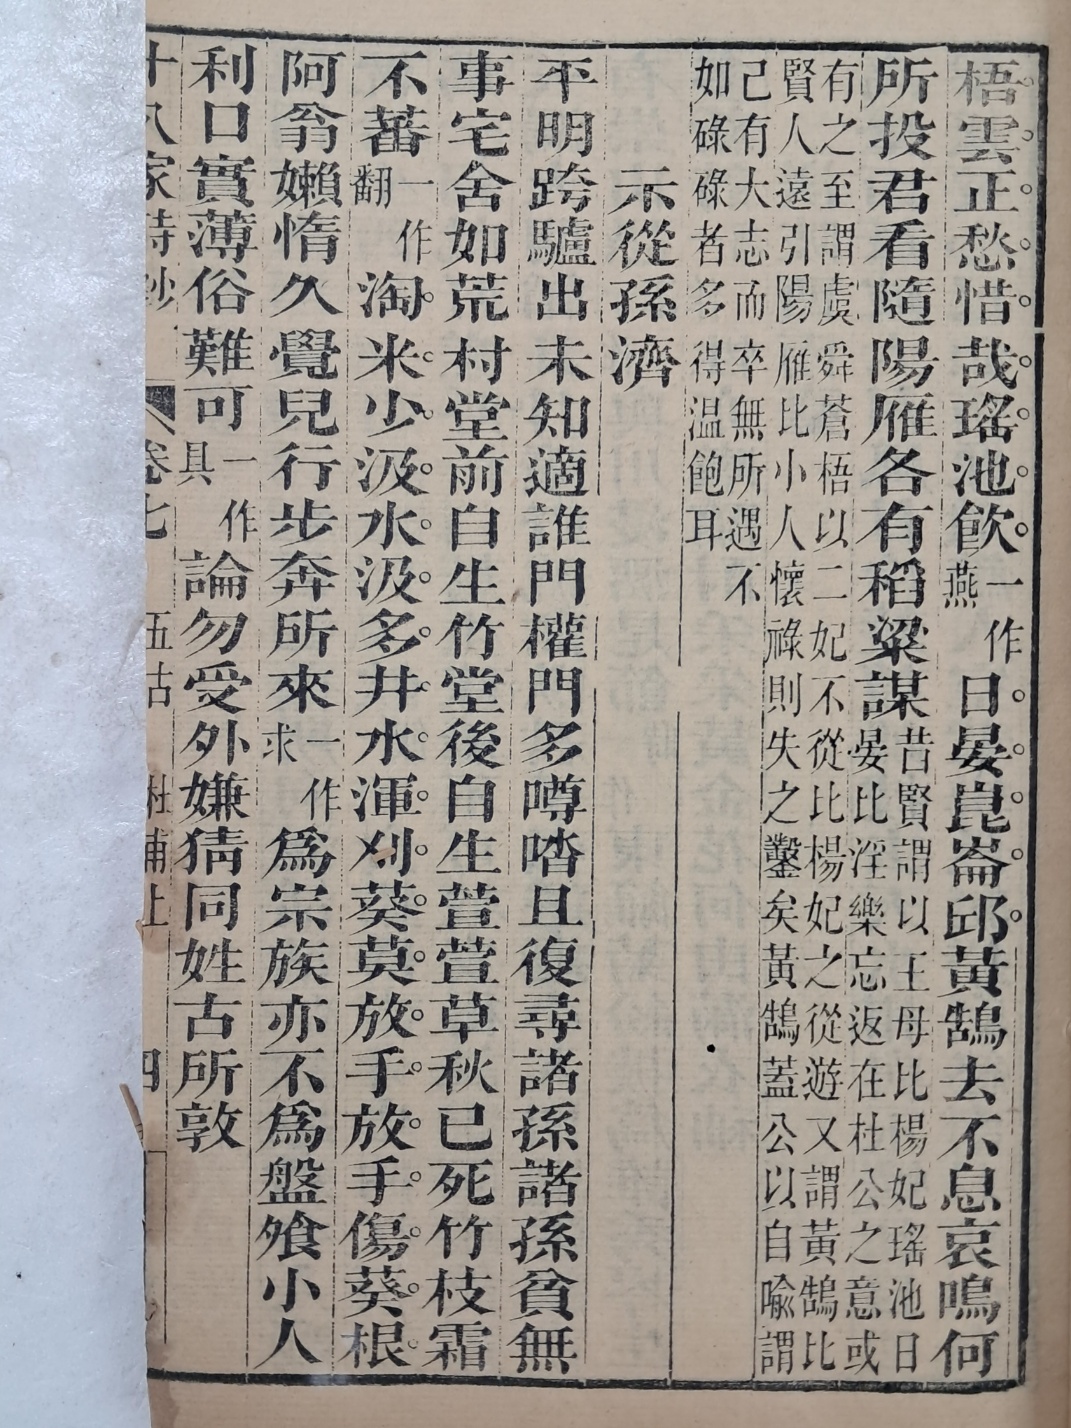 梧雲正愁惜哉瑤池飲一作燕日晏崑崙邱黃鵠去不息哀鳴何
所投君看隨陽雁各有稻粱謀昔賢謂以王母比楊妃瑤池日晏比淫樂忘返在杜公之意或
有之至謂虞舜蒼梧以二妃不從比楊妃之從遊又謂黃鵠比賢人遠引陽雁比小人懷祿則失之鑿矣黃鵠蓋公以自喻謂
己有大志而卒無所遇不如碌碌者多得温飽耳
示從孫濟
平明跨驢出未知適誰門權門多噂喒且復尋諸孫諸孫貧無
事宅舍如荒村堂前自生竹堂後自生萱萱草秋已死竹枝霜
不蕃一作翻淘米少汲水汲多井水渾刈葵莫放手放手傷葵根
阿翁嬾惰久覺兒行步奔所來一作求為宗族亦不為盤飧小人
利口實薄俗難可一作具論勿受外嫌猜同姓古所敦
十八家詩鈔 卷七 五古 杜甫上 四